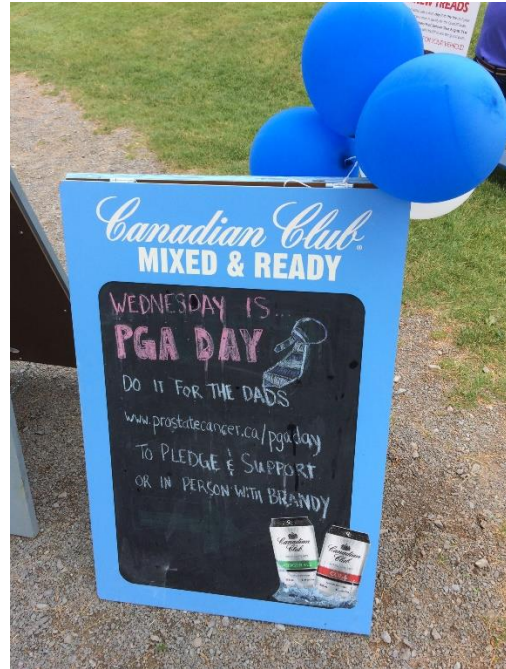 NEW TREADS
YOUR VEHICLE!
Canadian Club
MIXED & READY
WEDNESDAY IS...
PGA DAY
DO IT FOR THE DADS
www.prostatecancer.ca/pgaday
TO PLEDGE & SUPPORT
OR IN PERSON WITH BRANDY
Canadian Club
Canadian Club